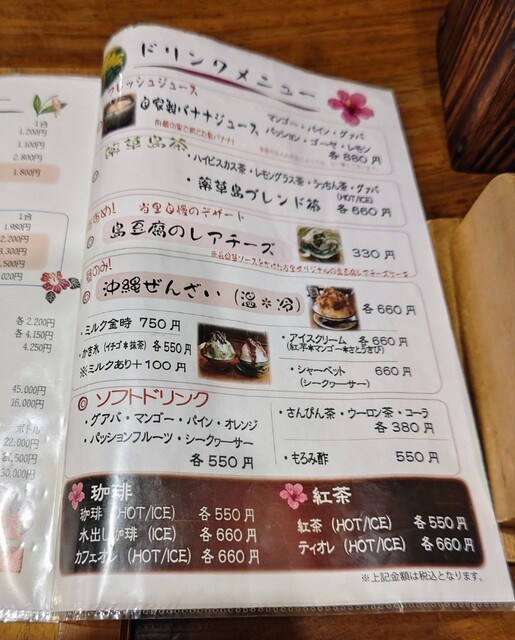 ドリンクメニュー
レッシュジュース
自家製バナナジュース
マンゴー・パイン・グァバ
パッション・ゴーヤ・レモン
各880円
薬草島茶
・ハイビスカス茶・レモングラス茶・うっちん茶・グァバ
(HOT/ICE)
・薬草島ブレンド茶 各660円
当里自慢のデザート
島豆腐のレアチーズ
330円
沖縄ぜんざい (温*冷)
各660円
・ミルク金時 750円
・かき氷 (イチゴ*抹茶) 各550円
※ミルクあり+100円
・アイスクリーム 各660円
(紅芋*マンゴー*さとうきび)
・シャーベット 660円
(シークヮーサー)
ソフトドリンク
・グアバ・マンゴー・パイン・オレンジ
・パッションフルーツ・シークヮーサー
各550円
・さんぴん茶・ウーロン茶・コーラ
各380円
・もろみ酢 550円
珈琲
珈琲 (HOT/ICE) 各550円
水出し珈琲 (ICE) 各660円
カフェオレ (HOT/ICE) 各660円
紅茶
紅茶 (HOT/ICE) 各550円
ティオレ (HOT/ICE) 各660円
※上記金額は税込となります。
1合
1,200円
1,100円
2,800円
1,800円
1合
1,980円
2,200円
3,300円
各2,200円
各4,150円
4,250円
45,000円
16,000円
ボトル
22,000円